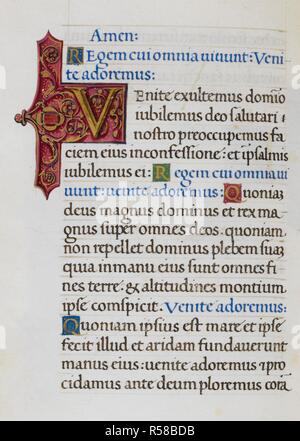 Amen:
Regem cui omnia uiuunt: Veni
te adoremus:
Venite exultemus domio
iubilemus deo salutari
nostro preoccupemus fa
ciem eius inconfessione: et ipsalmis
iubilemus ei: Regem cui omnia ui
uunt: uenite adoremus: Quoniaz
deus magnus dominus et rex ma
gnus super omnes deos. quoniam
non repellet dominus plebem suaz
quia in manu eius sunt omnes fi
nes terre. & altitudines montium
ipse comspicit. Venite adoremus:
Quoniam ipsius est mare et ipse
fecit illud et aridam fundauerunt
manus eius: uenite adoremus & pro
cidamus ante deum ploremus corā
alamy
Image ID: R58BDB
www.alamy.com